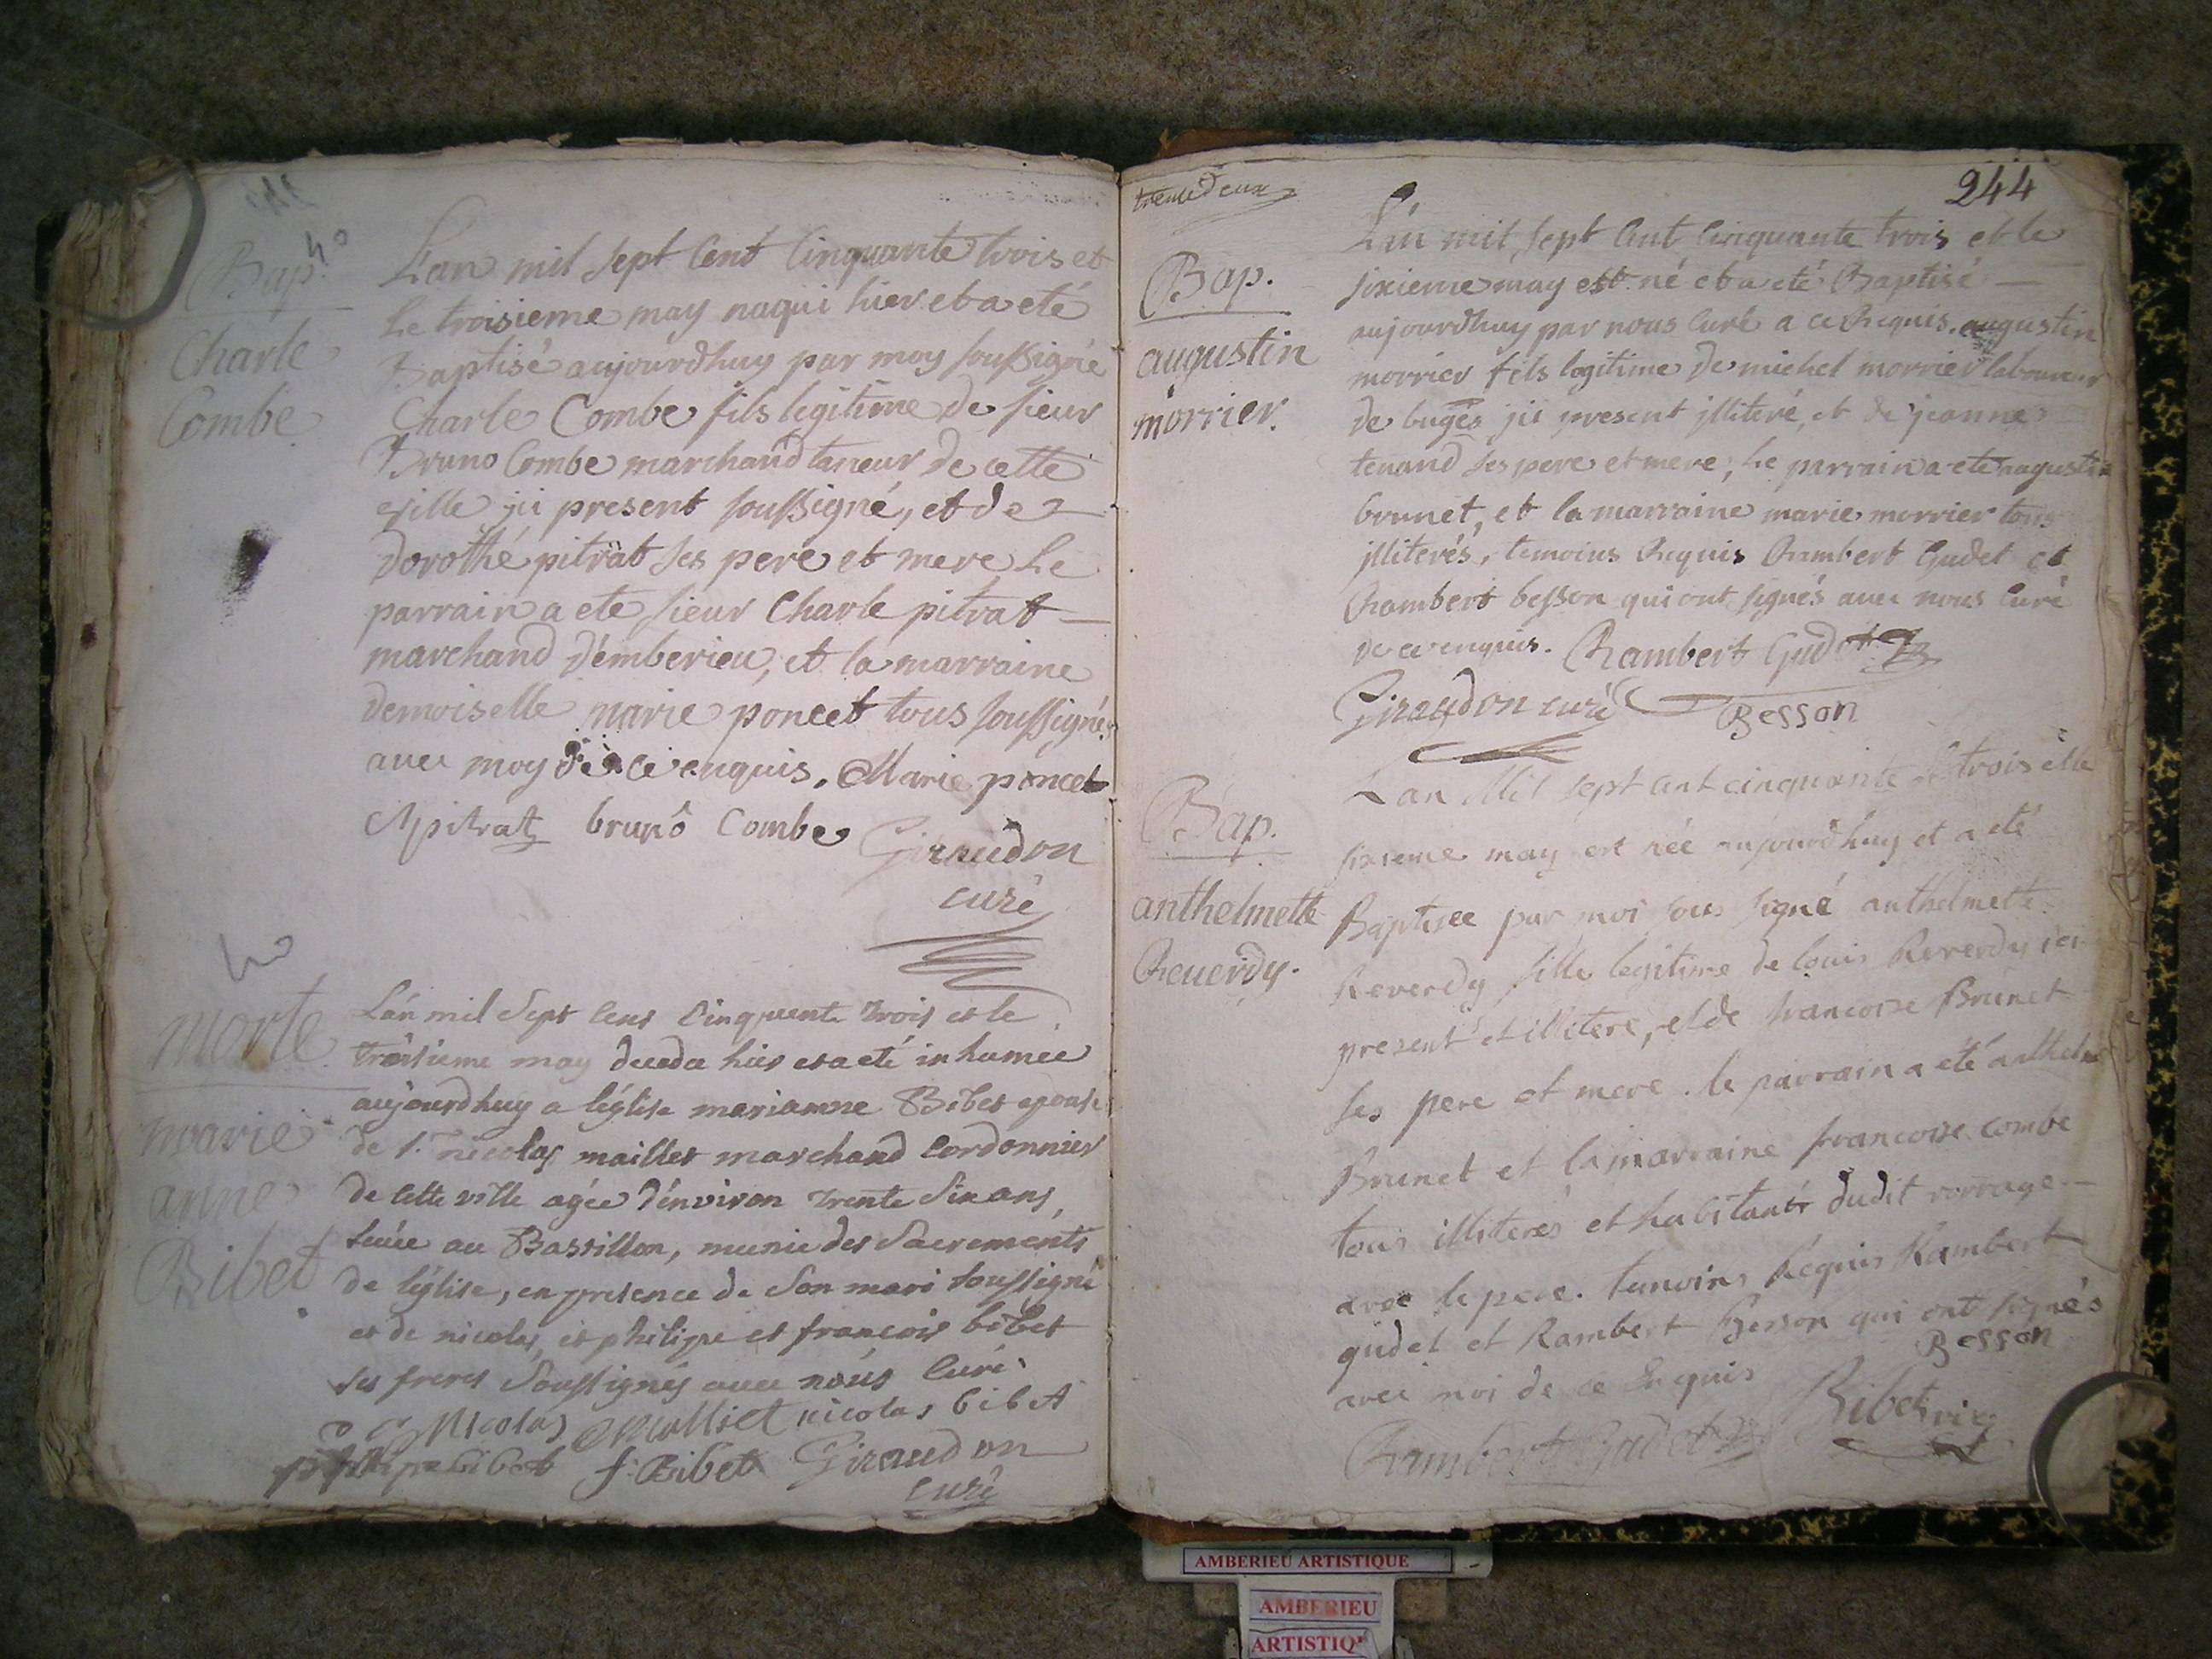 Bap.
Charle
Combe
L'an mil sept Cent Cinquante trois et
Le troisieme may naqui hier et a eté
Baptisé aujourdhuy par moy soussigné
Charle Combe fils legitime de sieur
Bruno Combe marchand taneur de cette
ville ici present soussigné, et de
dorothé pitrat ses pere et mere Le
parrain a ete sieur Charle pitrat
marchand d'emberieu, et la marraine
demoiselle marie poncet tous soussignés
avec moy de ce enquis. Marie poncet
Cpitrat brunô Combe Giraudon
curé
morte
marie
anne
Bibet
L'an mil Sept Cens Cinquente trois et le
troisieme may decedée hier et a eté inhumée
aujourdhuy a l'église marianne Bibet epouse
de sr. nicolas maillet marchand Cordonnier
de cette ville agée d'environ trente Six ans,
au Bastillon, munie des Sacrements
de l'église, en presence de Son mari Soussigné
et de nicolas, et philipe et françois bibet
ses freres Soussignés avec nous Curé
Nicolas Malliet nicolas bibet
philipe bibet f. Bibet Giraudon
curé
244
trente deux
Bap.
augustin
morrier.
L'an mil sept Cent Cinquante trois et le
sixieme may est né et a eté Baptisé
aujourdhuy par nous Curé a ce Requis. augustin
morrier fils legitime de michel morrier laboureur
de buges ici present illiteré, et de jeanne
tenand ses pere et mere, Le parrain a ete augustin
brunet, et la marraine marie morrier tous
illiterés, temoins Requis Rambert Gudet et
Rambert besson qui ont signés avec nous Curé
de ce enquis. Rambert Gudet
Giraudon curé Besson
Bap.
anthelmette
Reverdy.
L'an Mil sept cent cinquante trois et le
sixieme may est née aujourdhuy et a eté
Baptisee par moi sous signé anthelmette
Reverdy fille legitime de louis Reverdy ici
present et illitere, et de francoise Brunet
ses pere et mere. le parrain a été anthelme
Brunet et la marraine francoise combe
tous illiterés et habitants dudit vorrage
avec le pere. temoins Requis Rambert
gudet et Rambert Besson qui ont signés
avec moi de ce Enquis Besson
Rambert Gudet Bibet vic
AMBERIEU ARTISTIQUE
AMBERIEU
ARTISTIQ